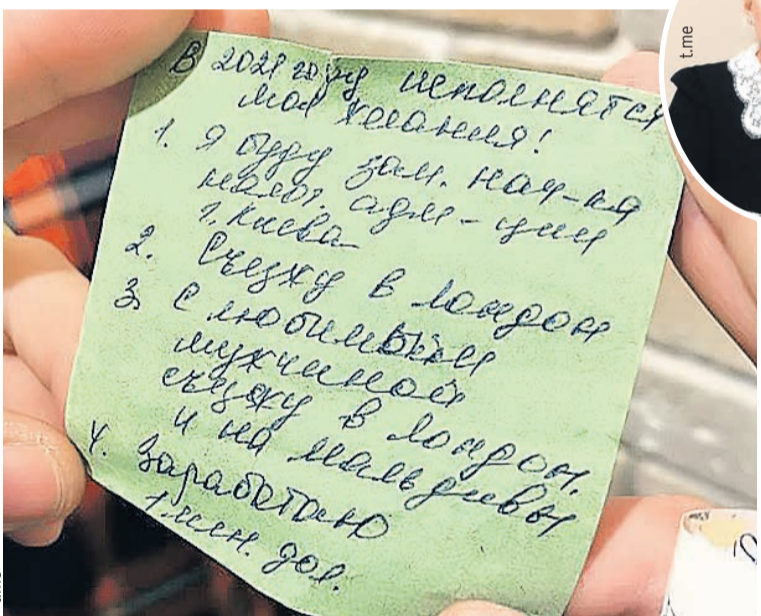 В 2021 году исполнятся
мои желания!
1. Я буду зам. нач-ка
налог. адм-ции
г. Киева
2. Съезжу в Лондон
3. С любимым
мужчиной
съезжу в Лондон.
и на Мальдивы
4. Заработаю
1 млн. дол.
t.me